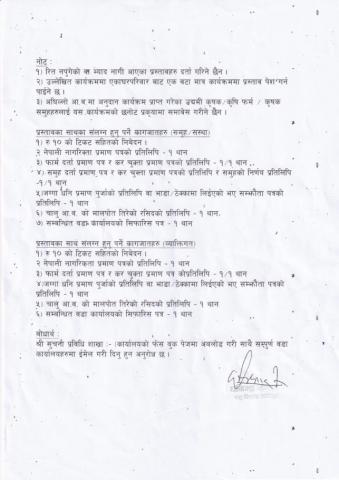 नोट :
१) रित नपुगेको वा म्याद नाघी आएका प्रस्तावहरु दर्ता गरिने छैन ।
२) उल्लेखित कार्यक्रममा एकाघरपरिवार बाट एक वटा मात्र कार्यक्रममा प्रस्ताव पेश गर्न
पाईने छ ।
३) अघिल्लो आ.व.मा अनुदान कार्यक्रम प्राप्त गरेका उद्यमी कृषक/कृषि फर्म / कृषक
समुहहरुलाई यस कार्यक्रमको छनोट प्रक्रयामा समावेस गरीने छैन ।
प्रस्तावका साथका संलग्न हुनु पर्ने कागजातहरु (समुह/संस्था)
१) रु १० को टिकट सहितको निबेदन ।
२ नेपाली नागरिकता प्रमाण पत्रको प्रतिलिपि - १ थान
३) फार्म दर्ता प्रमाण पत्र र कर चुक्ता प्रमाण पत्रको प्रतिलिपि - १/१ थान .
४) समुह दर्ता प्रमाण पत्र र कर चुक्ता प्रमाण पत्रको प्रतिलिपि र समुहको निर्णय प्रतिलिपि
-१/१ थान
५)जग्गा धनि प्रमाण पुर्जाको प्रतिलिपि वा भाडा/ठेक्कामा लिईएको भए सम्झौता पत्रको
प्रतिलिपि - १ थान
६) चालु आ.व. को मालपोत तिरेको रसिदको प्रतिलिपि - १ थान.
७) सम्बन्धित वडा कार्यालयको सिफारिस पत्र - १ थान
प्रस्तावका साथ संलग्न हुनु पर्ने कागजातहरु (व्याक्तिगत)
१) रु १० को टिकट सहितको निबेदन ।
२ नेपाली नागरिकता प्रमाण पत्रको प्रतिलिपि - १ थान
३) फार्म दर्ता प्रमाण पत्र र कर चुक्ता प्रमाण पत्र कोप्रतिलिपि - १/१ थान
४)जग्गा धनि प्रमाण पुर्जाको प्रतिलिपि वा भाडा/ठेक्कामा लिईएको भए सम्झौता पत्रको
प्रतिलिपि - १ थान
५) चालु आ.व. को मालपोत तिरेको रसिदको प्रतिलिपि - १ थान
६) सम्बन्धित वडा कार्यालयको सिफारिस पत्र - १ थान
बोधार्थ :
श्री सुचनी प्रविधि शाखा :- (कार्यालयको फेस बुक पेजमा अपलोड गरी साथै सम्पुर्ण वडा
कार्यालयहरुमा ईमेल गरी दिनु हुन अनुरोध छ ।